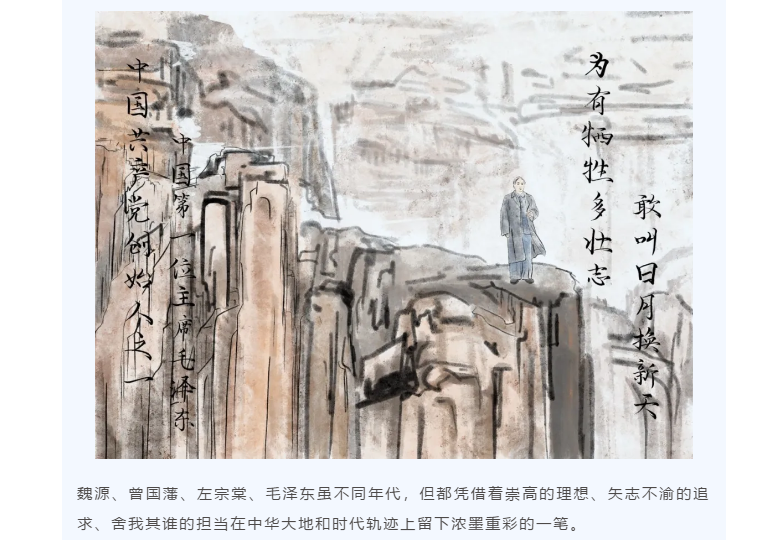 中国共产党创始人之一
中国第一位主席毛泽东
为有牺牲多壮志
敢叫日月换新天
魏源、曾国藩、左宗棠、毛泽东虽不同年代，但都凭借着崇高的理想、矢志不渝的追
求、舍我其谁的担当在中华大地和时代轨迹上留下浓墨重彩的一笔。